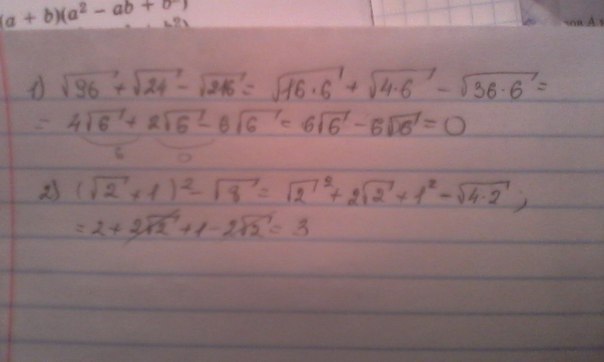 (a + b)(a² - ab + b²)
1) √96 + √24 - √216 = √16·6 + √4·6 - √36·6 =
= 4√6 + 2√6 - 6√6 = 6√6 - 6√6 = 0
6 0
2) (√2 + 1)² - √8 = √2² + 2√2 + 1² - √4·2 ;
= 2 + 2√2 + 1 - 2√2 = 3